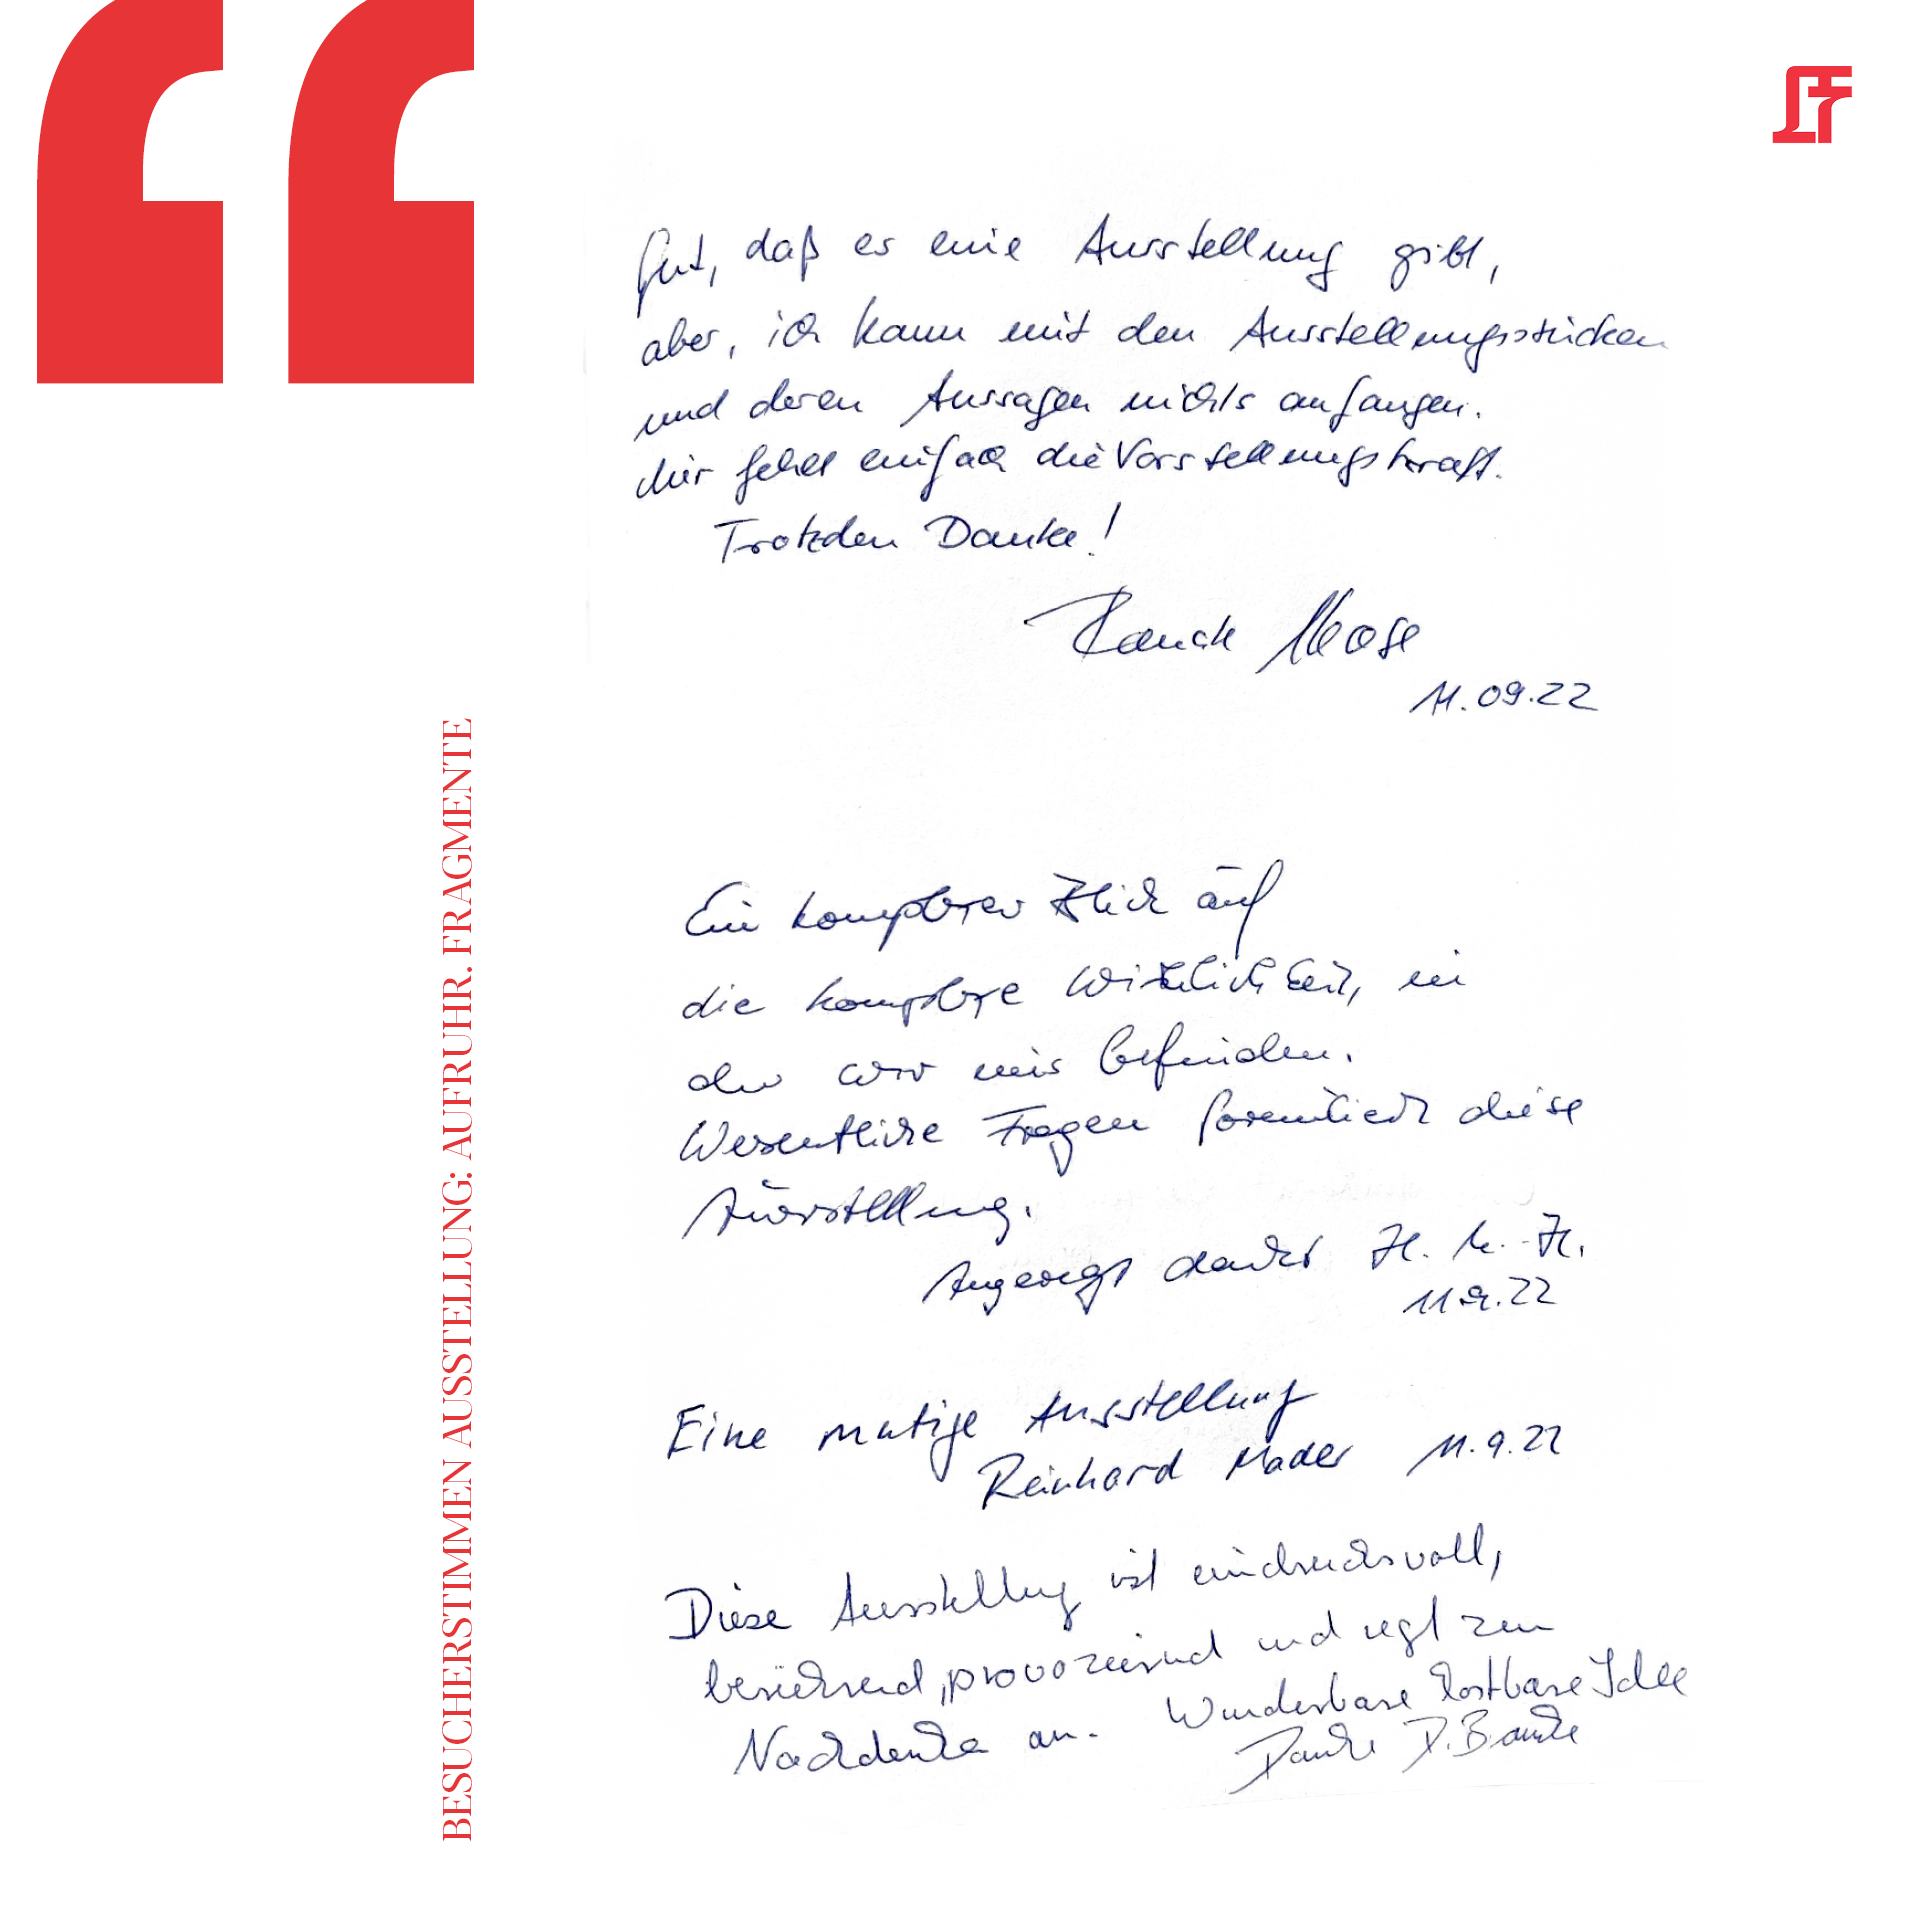 BESUCHERSTIMMEN AUSSTELLUNG: AUFRUHR. FRAGMENTE
Gut, daß es eine Ausstellung gibt,
aber, ich kann mit den Ausstellungsstücken
und deren Aussagen nichts anfangen.
Mir fehlt einfach die Vorstellungskraft.
Trotzden Danke!
11.09.22
Ein komplexer Blick auf
die komplexe Wirklichkeit, in
der wir uns befinden.
Wesentliche Fragen diese
Ausstellung.
Angeregt dankt H. K.-H.
11.9.22
Eine mutige Ausstellung
Reinhard Mader 11.9.22
Diese Ausstellung ist eindrucksvoll,
berührend, provozierend und regt zum
Nachdenken an. Wunderbare kostbare Idee
Danke